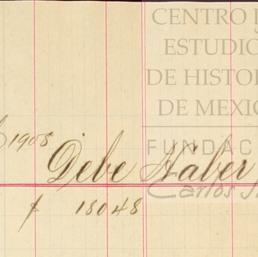 CENTRO
ESTUDIO
DE HISTO
DE MEXIC
FUNDAC
Carlos
1905
Debe Haber
18048